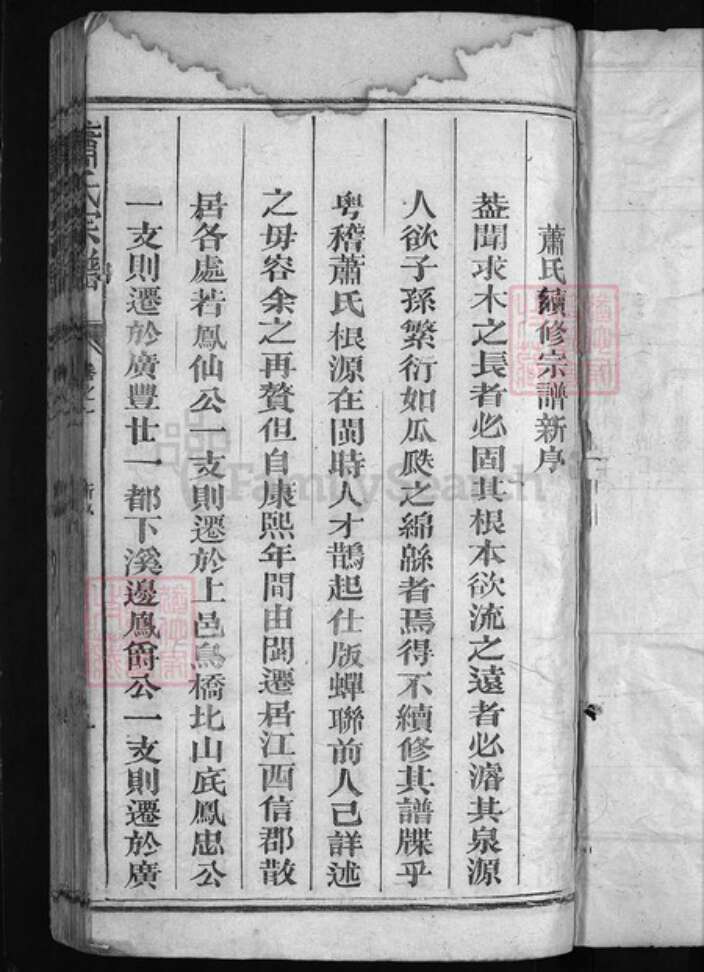 蕭氏續修宗譜新序
葢聞求木之長者必固其根本欲流之遠者必濬其泉源
人欲子孫繁衍如瓜瓞之綿緜者焉得不續修其譜牒乎
粤稽蕭氏根源在閩時人才鵲起仕版蟬聯前人已詳述
之毋容余之再贅但自康熙年間由閩遷居江西信郡散
居各處若鳳仙公一支則遷於上邑烏橋北山底鳳忠公
一支則遷於廣豐廿一都下溪邊鳳爵公一支則遷於廣
蕭氏宗譜
FamilySearch